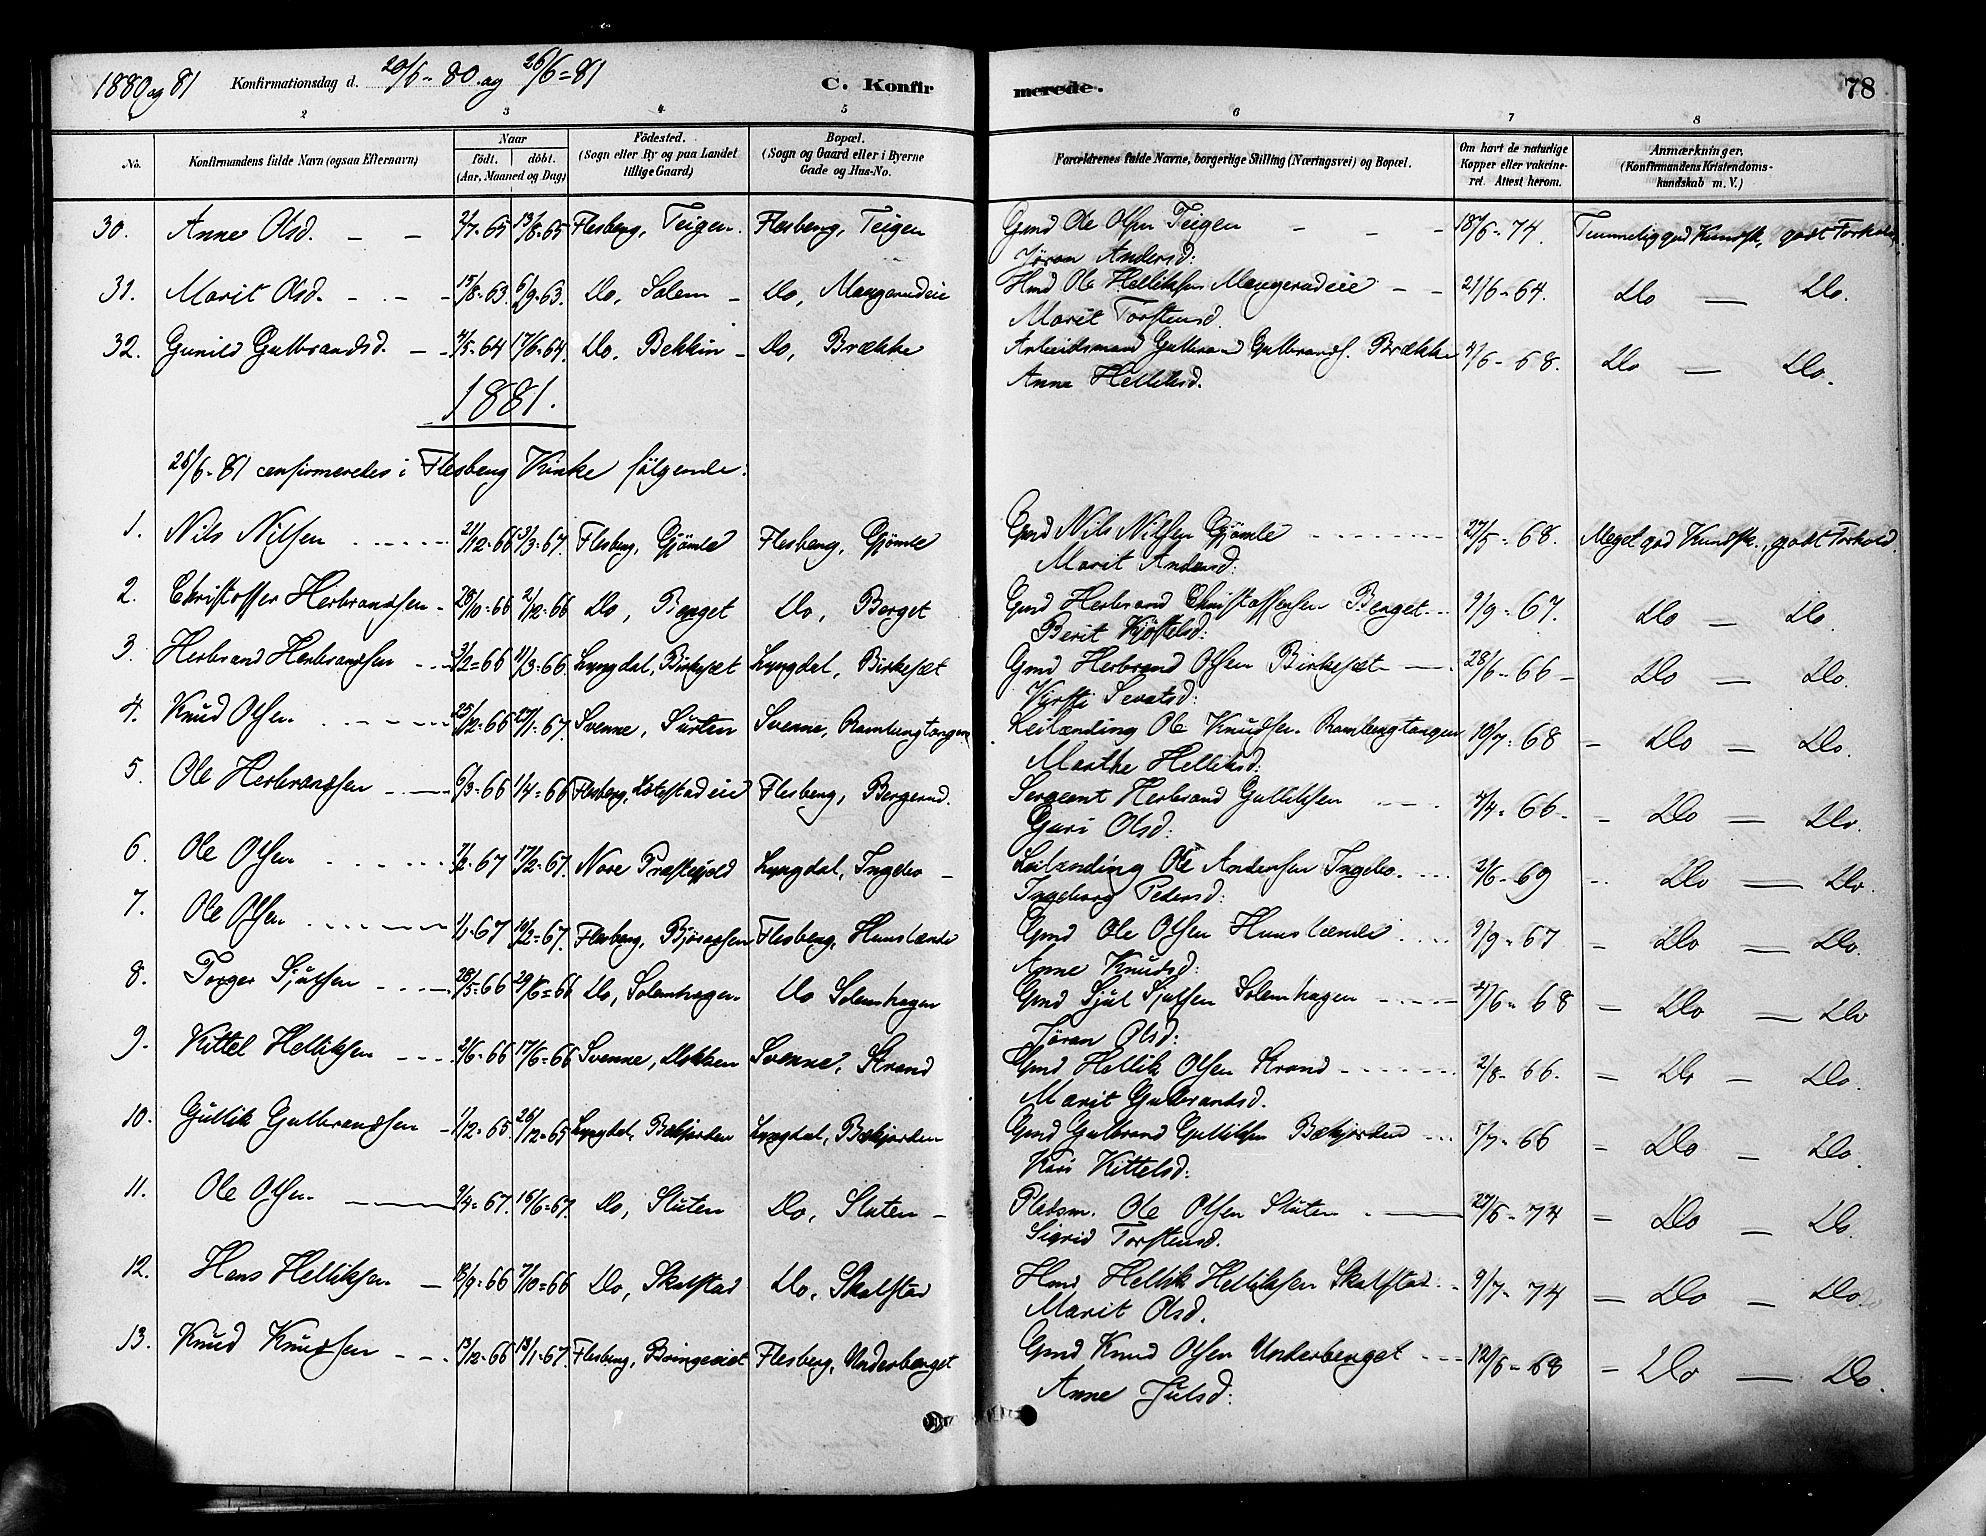 1880 og 81 Konfirmationsdag d. 20/6-80 og 26/6=81 C. Konfirmerede. 78
2 3 4 5 6 7 8
No. Konfirmandens fulde Navn (ogsaa Efternavn) Naar født. døbt. (Aar, Maaned og Dag) Födested. (Sogn eller By og paa Landet tillige Gaard) Bopæl. (Sogn og Gaard eller i Byerne Gade og Hus-No. Forældrenes fulde Navne, borgerlige Stilling (Næringsvei) og Bopæl. Om havt de naturlige Kopper eller vakcineret. Attest herom. Anmærkninger. (Konfirmandens Kristendomskundskab m. V.)
30. Anne Olsd. 2/7-65 13/8-65 Flesberg, Teigen. Flesberg, Teigen Gmd Ole Olsen Teigen 18/6-74. Temmelig god Kundsk., godt Forhold
Jøran Andersd:
31. Marit Olsd. 15/8-63. 6/9-63. Do, Solem Do, Mangerudeie Hmd Ole Helliksen Mangerudeie 21/6-64. Do Do.
Marit Torstensd.
32. Gunild Gulbrandsd. 7/5-64 17/6-64. Do, Bekkin Do, Brække Arbeidsmand Gulbrand Gulbrands. Brække 4/6-68. Do Do.
Anne Helliksd.
1881.
26/6-81 confirmeredes i Flesberg Kirke følgende:
1. Nils Nilsen 21/12-66 3/3-67. Flesberg, Gjömle Flesberg, Gjömle Gmd Nils Nilsen Gjömle 27/5-68. Meget god Kundsk., godt Forhold.
Marit Andersd:
2. Christoffer Herbrandsen 28/10-66 2/12-66 Do, Berget Do, Berget Gmd Herbrand Christoffersen Berget 9/9-67. Do Do.
Berit Kjøstelsd:
3. Herbrand Herbrandsen 3/2=66 11/3-66. Lyngdal, Birkesæt Lyngdal, Birkesæt Gmd Herbrand Olsen Birkesæt 28/6-66 Do Do.
Kirsti Sevatsd:
4. Knud Olsen 25/12-66 27/1-67. Svenne, Surten Svenne, Rambergtangen Leilænding Ole Knudsen Rambergtangen 10/7-68 Do Do.
Marthe Helliksd:
5. Ole Herbrandsen 6/3-66 1/4-66 Flesberg, Lotestadeie Flesberg, Bergerud. Sergeant Herbrand Gulliksen 4/4-66 Do Do.
Guri Olsd:
6. Ole Olsen 7/2-67 17/2-67. Nore Præstegjeld Lyngdal, Ingebo Leilænding Ole Andersen Ingebo 2/6-69 Do Do.
Ingeborg Pedersd:
7. Ole Olsen 1/1-67 10/2-67. Flesberg, Björaasen Flesberg, Hunstænde Gmd Ole Olsen Hunstænde 9/9-67 Do Do.
Anne Knudsd:
8. Torger Sjulsen 28/5-66 29/6=66 Do, Solemhagen Do Solemhagen Gmd Sjul Sjulsen Solemhagen 27/6-68 Do Do
Jøran Olsd:
9. Kittel Helliksen 2/6-66 17/6-66 Svenne, Dokken Svenne, Strand Gmd Hellik Olsen Strand 2/8-66. Do Do.
Marit Gulbrandsd.
10. Gullik Gulbrandsen 1/12-65. 26/12=65 Lyngdal, Bækjorden Lyngdal, Bækjorden Gmd Gulbrand Gulliksen Bækjorden 7/7-66 Do Do.
Kari Kittelsd:
11. Ole Olsen 9/4-67. 16/6-67. Do, Sluten Do, Sluten Pladsm. Ole Olsen Sluten 29/6-74 Do Do.
Sigrid Torstensd.
12. Hans Helliksen 18/9=66 7/10=66 Do, Skalstad Do, Skalstad Hmd Hellik Helliksen Skalstad 9/7-74 Do Do
Marit Olsd.
13. Knud Knudsen 13/12-66 13/1-67 Flesberg, Bringeeiet Flesberg, Underberget Gmd Knud Olsen Underberget 12/6-68 Do Do.
Anne Julsd: